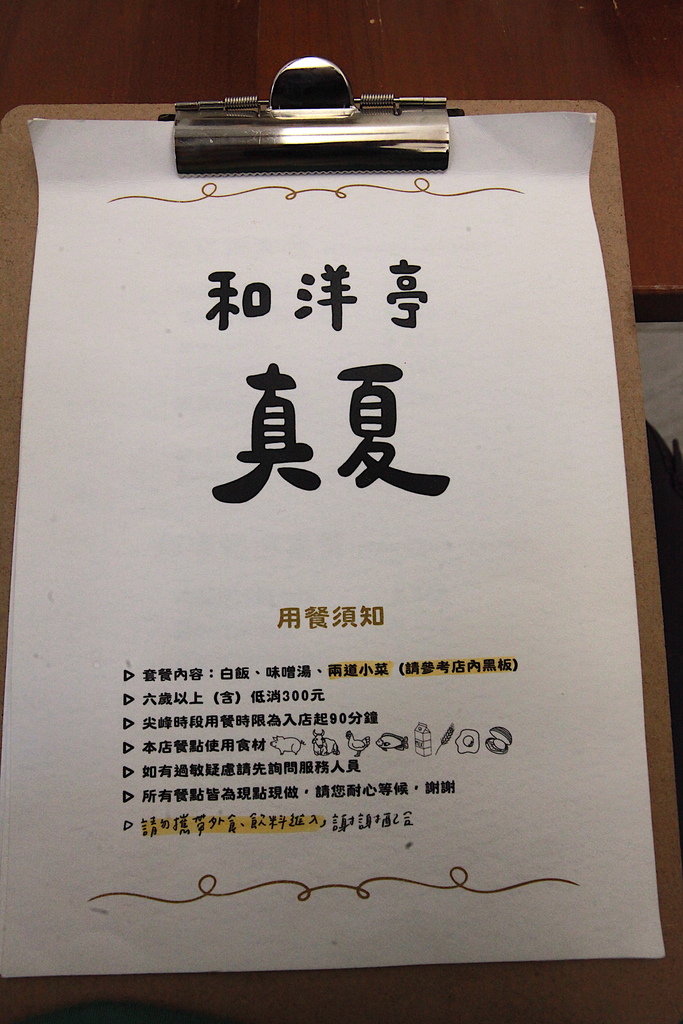 和洋亭
真夏
用餐須知
套餐內容：白飯、味噌湯、兩道小菜（請參考店內黑板）
六歲以上（含）低消300元
尖峰時段用餐時限為入店起90分鐘
本店餐點使用食材
如有過敏疑慮請先詢問服務人員
所有餐點皆為現點現做，請您耐心等候，謝謝
請勿攜帶外食、飲料進入，謝謝配合